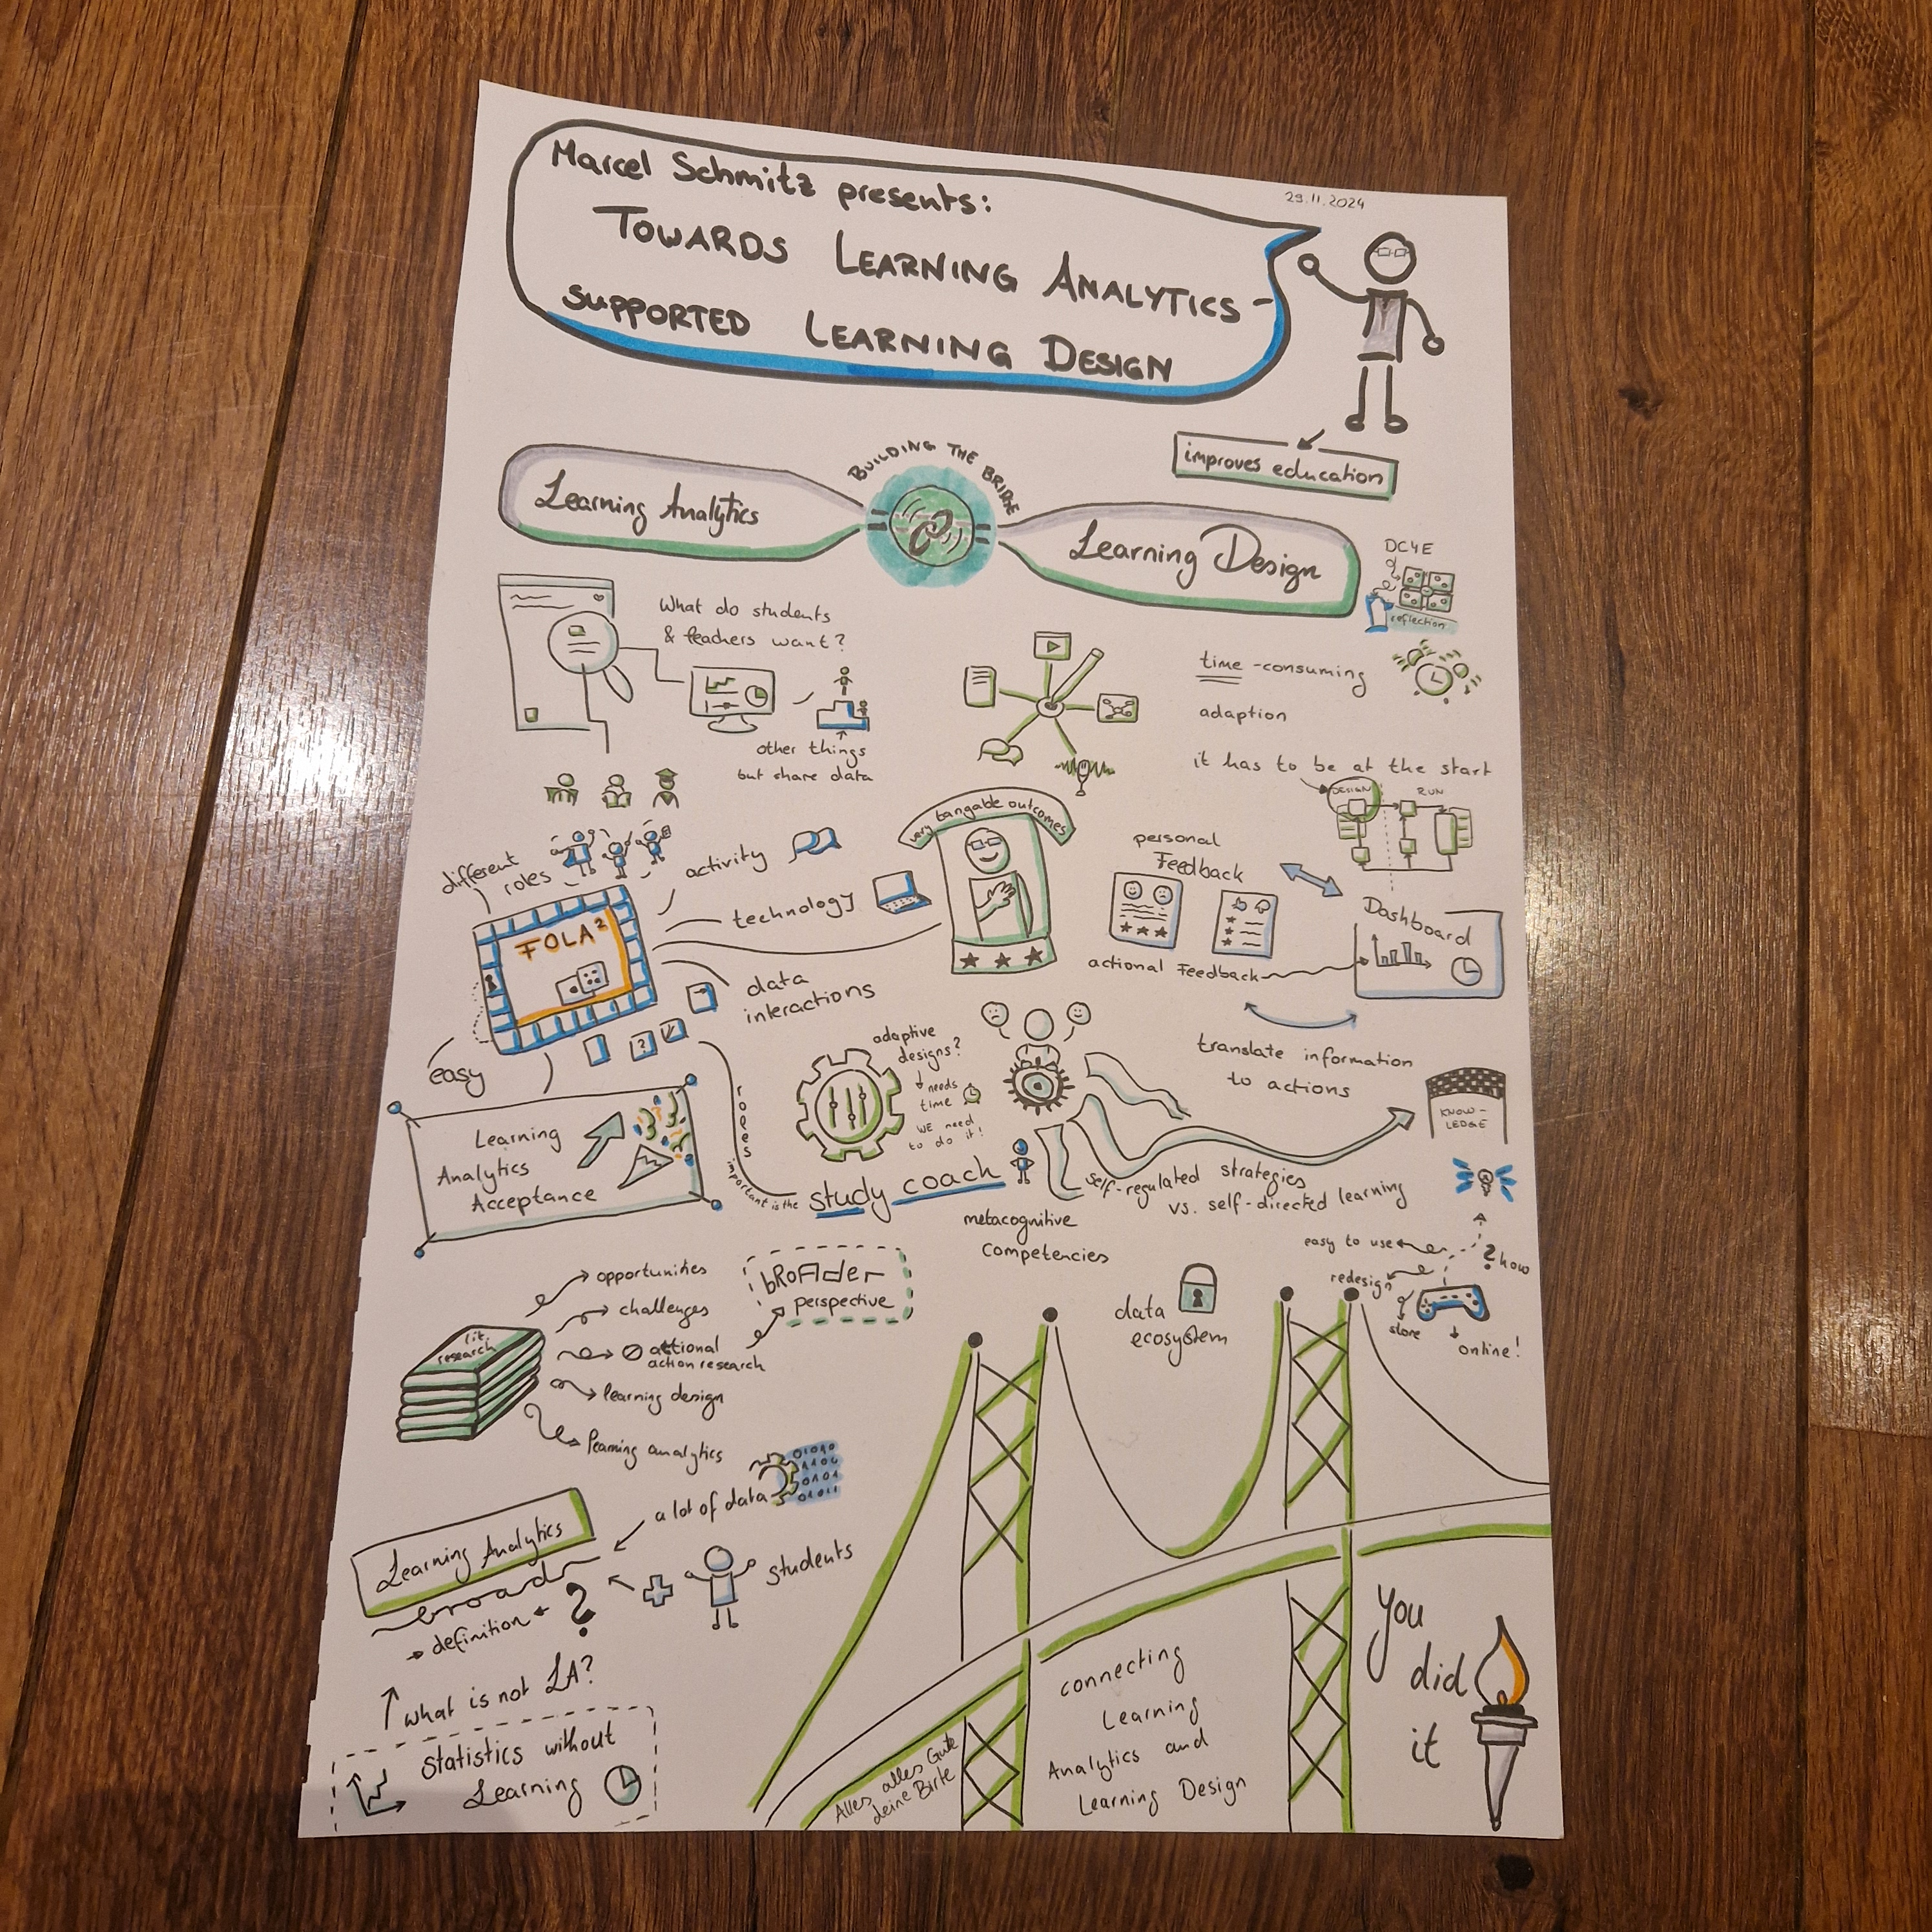 Marcel Schmitz presents:
TOWARDS LEARNING ANALYTICS-
SUPPORTED LEARNING DESIGN
29.11.2024
improves education
BUILDING THE BRIDGE
Learning Analytics
Learning Design
DC4E
reflection
What do students
& teachers want?
other things
but share data
time-consuming
adaption
it has to be at the start
DESIGN
RUN
different
roles
activity
technology
data
interactions
FOLA²
?
easy
very tangable outcomes
personal
Feedback
actional Feedback
Dashboard
translate information
to actions
Learning
Analytics
Acceptance
roles
important is the
study coach
adaptive
designs?
needs
time
WE need
to do it!
metacognitive
competencies
self-regulated strategies
vs. self-directed learning
KNOW-
LEDGE
easy to use
? how
redesign
store
online!
lit.
research
opportunities
challenges
action research
learning design
learning analytics
bRoader
perspective
data
ecosystem
a lot of data
01010
01011
students
Learning Analytics
broad
definition
?
what is not LA?
Statistics without
Learning
Alles alles Gute
deine Birte
connecting
Learning
Analytics and
Learning Design
You
did
it